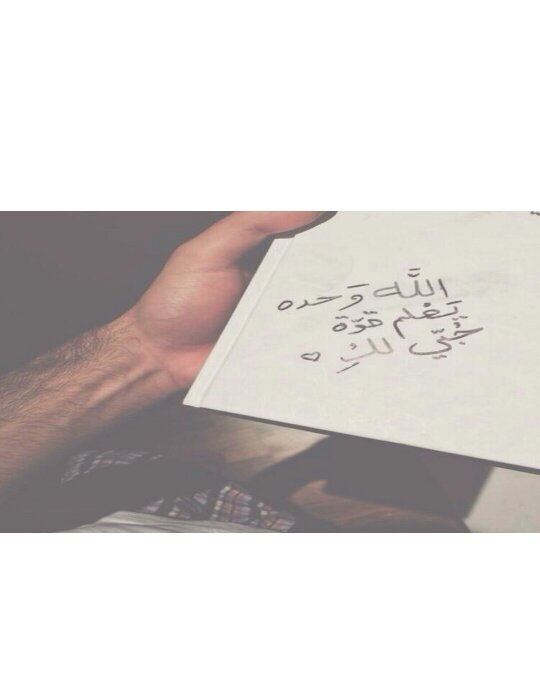 اللَّه وَحده
يَعلم قوّة
حُبّي لكِ ♡